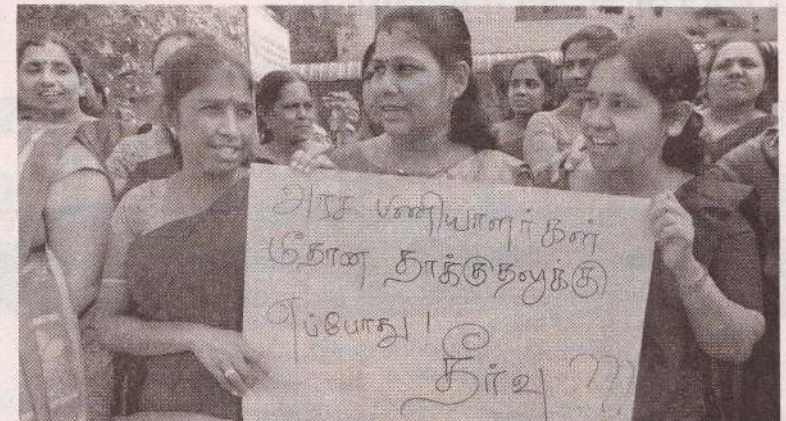 அரச பணியாளர்கள்
மீதான தாக்குதலுக்கு
எப்போது!
தீர்வு ???